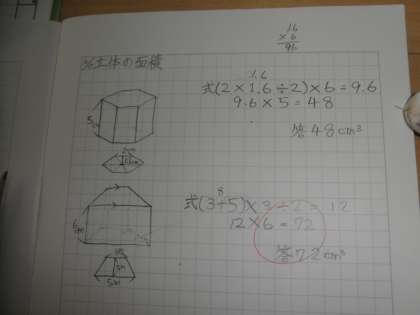 1.6
×6
9.6
立体の面積
1.6
式(2×1.6÷2)×6=9.6
9.6×5=48
答48cm³
5cm
2cm
8
式(3+5)×3÷2=12
12×6=72
答72cm³
6cm
5cm